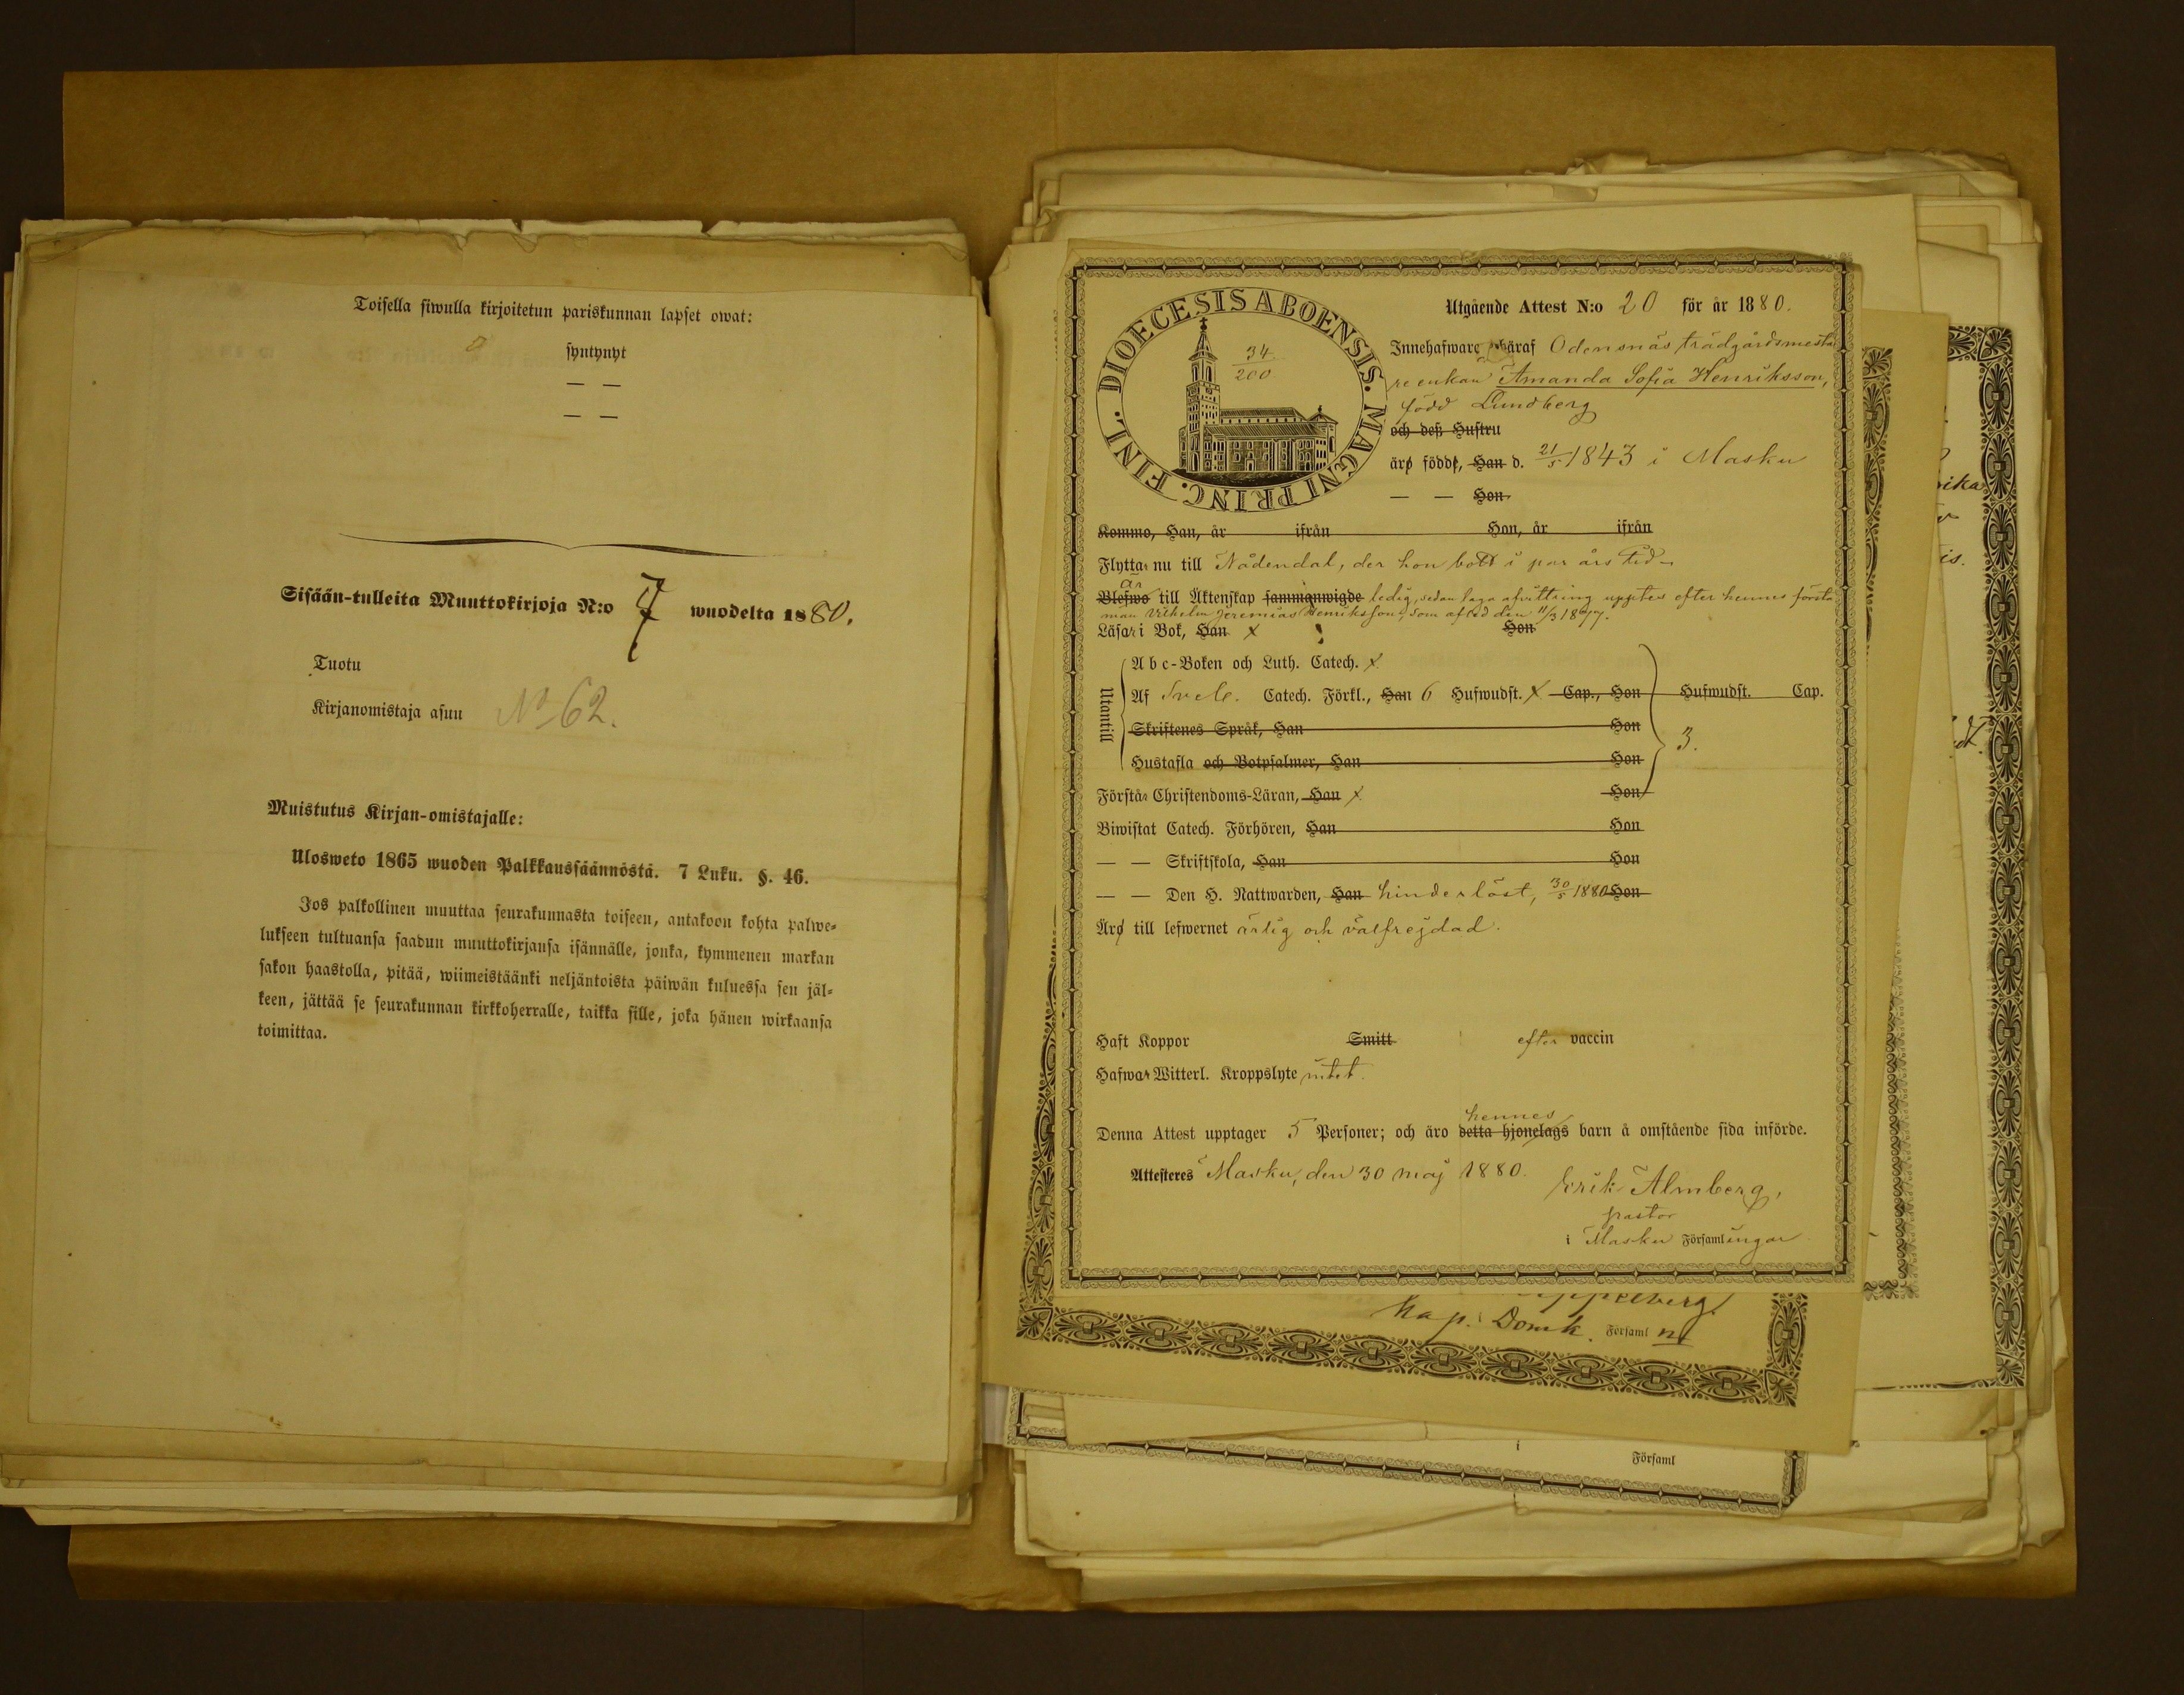 Toisella siwulla kirjoitetun pariskunnan lapset owat:
syntynyt
— —
— —
Sisään-tulleita Muuttokirjoja N:o 7 wuodelta 1880.
Tuotu
Kirjanomistaja asuu No 62.
Muistutus Kirjan-omistajalle:
Ulosweto 1865 wuoden Palkkaussäännöstä. 7 Luku. §. 46.
Jos palkollinen muuttaa seurakunnasta toiseen, antakoon kohta palwe-
lukseen tultuansa saadun muuttokirjansa isännälle, jonka, kymmenen markan
sakon haastolla, pitää, wiimeistäänki neljäntoista päiwän kuluessa sen jäl-
keen, jättää se seurakunnan kirkkoherralle, taikka sille, joka hänen wirkaansa
toimittaa.
DIOECESIS ABOENSIS. MAGNI PRINC. FINL.
34
200
Utgående Attest N:o 20 för år 1880.
Innehafware häraf Odensnäs trädgårdsmesta
re enkan Amanda Sofia Henriksson,
född Lundberg
och deß Hustru
äro födde, Han d. 21/5 1843 i Masku
— — Hon
Kommo, Han, år ifrån Hon, år ifrån
Flyttar nu till Nådendal, der hon bott i par års tid
är
Blefwo till Äktenskap sammanwigde ledig, sedan laga afvittring upptes efter hennes första
man Vilhelm Jeremias Henriksson, som afled den 11/3 1877.
Läsar i Bok, Han x Hon
Utantill
Abc-Boken och Luth. Catech. x
Af Sveb. Catech. Förkl., Han 6 Hufwudst. x Cap., Hon Hufwudst. Cap.
Skriftenes Språk, Han Hon
3.
Hustafla och Botpsalmer, Han Hon
Förstår Christendoms-Läran, Han x Hon
Biwistat Catech. Förhören, Han Hon
— — Skriftskola, Han Hon
— — Den H. Nattwarden, Han hinderlöst, 30/5 1880 Hon
Äro till lefwernet ärlig och välfrejdad.
Haft Koppor Smitt efter vaccin
Hafwar Witterl. Kroppslyte intet.
hennes
Denna Attest upptager 5 Personer; och äro detta hjonelags barn å omstående sida införde.
Attesteres Masku, den 30 maj 1880.
Erik Almberg,
pastor
i Masku Församlingar
Kap. Domk. Församl
i Församl